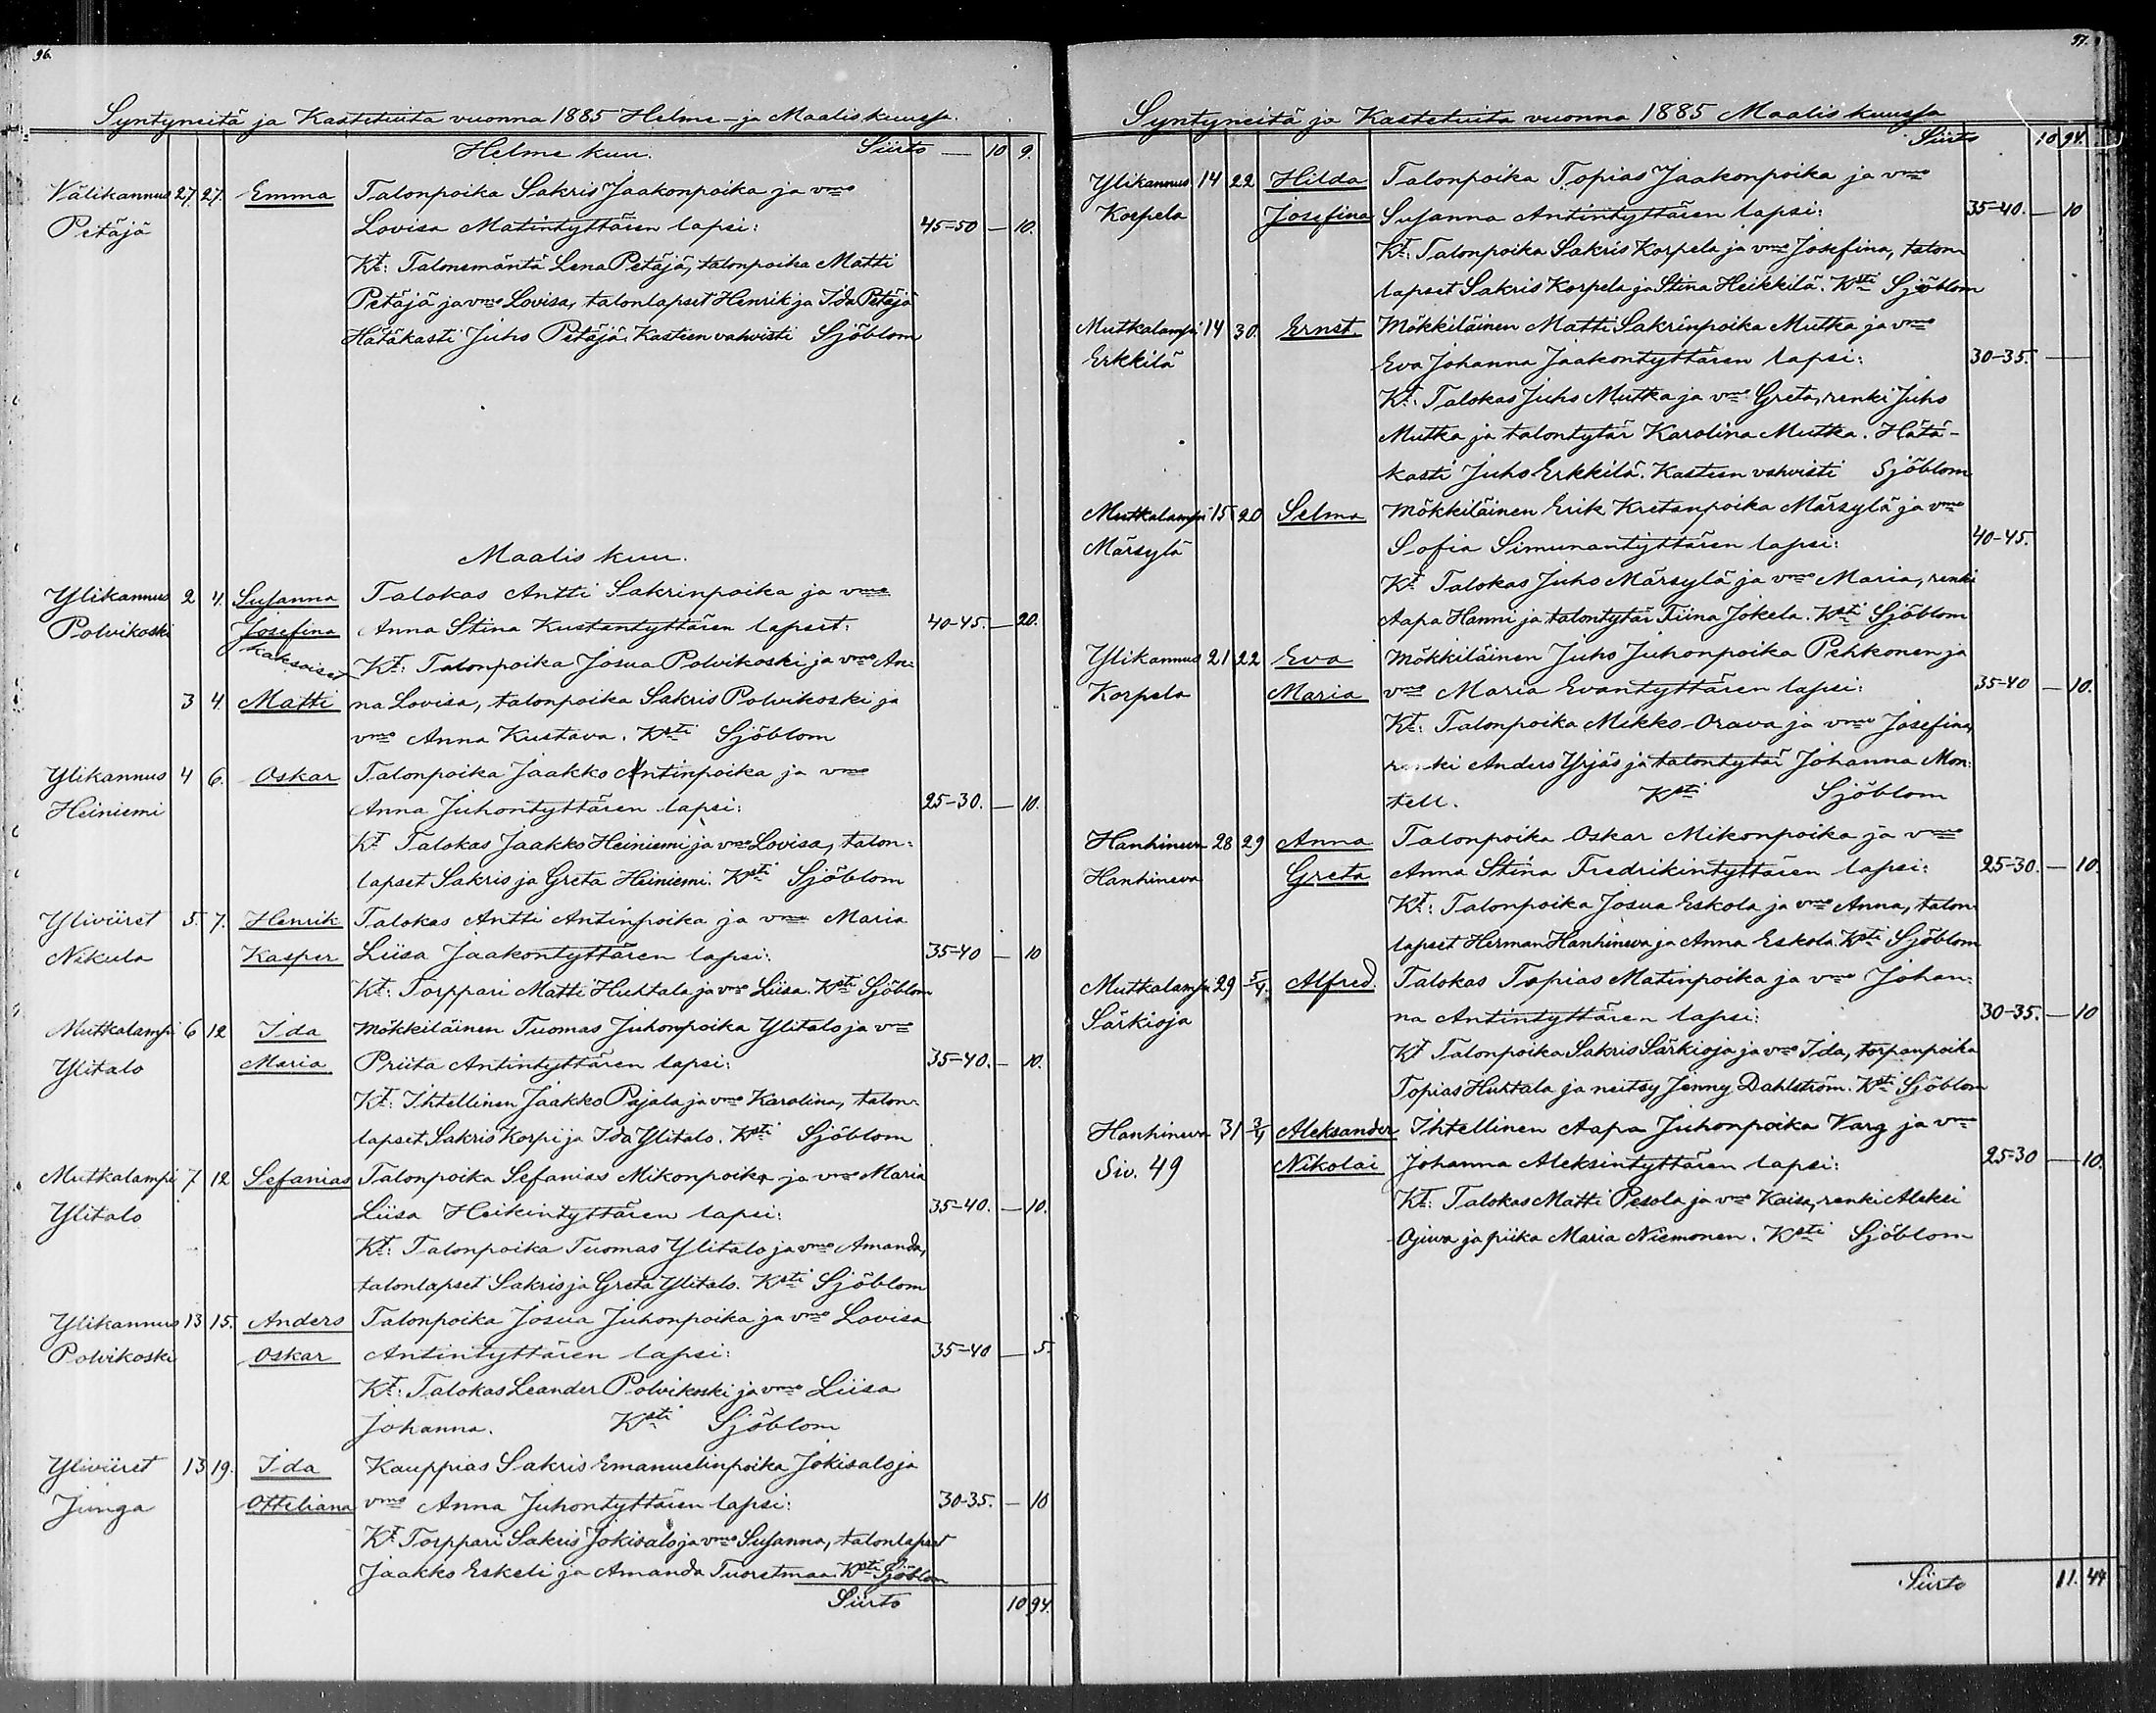 96.
Syntyneitä ja Kastetuita vuonna 1885 Helme- ja Maaliskuussa.
Helme kuu. Siirto — 10 9.
Välikannus 27. 27. Emma Talonpoika Sakris Jaakonpoika ja vmo
Petäjä Lovisa Matintyttären lapsi: 45-50 — 10.
Kt: Talonemäntä Lena Petäjä, talonpoika Matti
Petäjä ja vmo Lovisa, talonlapset Henrik ja Ida Petäjä
Hätäkasti Juho Petäjä. Kasteen vahvisti Sjöblom
Maalis kuu.
Ylikannus 2 4. Susanna Talokas Antti Sakrinpoika ja vmo
Polvikoski Josefina Anna Stina Kustantyttären lapset: 40-45. — 20.
kaksoiset Kt: Talonpoika Josua Polvikoski ja vmo An-
3 4. Matti na Lovisa, talonpoika Sakris Polvikoski ja
vmo Anna Kustava. Ksti Sjöblom
Ylikannus 4 6. Oskar Talonpoika Jaakko Antinpoika ja vmo
Heiniemi Anna Juhontyttären lapsi: 25-30. — 10.
Kt Talokas Jaakko Heiniemi ja vmo Lovisa, talon-
lapset Sakris ja Greta Heiniemi. Ksti Sjöblom
Yliviiret 5. 7. Henrik Talokas Antti Antinpoika ja vmo Maria
Nikula Kasper Liisa Jaakontyttären lapsi: 35-40 — 10
Kt: Torppari Matti Huhtala ja vmo Liisa. Ksti Sjöblom
Mutkalampi 6 12 Ida Mökkiläinen Tuomas Juhonpoika Ylitalo ja vmo
Ylitalo Maria Priita Antintyttären lapsi: 35-40. — 10.
Kt: Ihtellinen Jaakko Pajala ja vmo Karolina, talon-
lapset Sakris Korpi ja Ida Ylitalo. Ksti Sjöblom
Mutkalampi 7 12 Sefanias Talonpoika Sefanias Mikonpoika ja vmo Maria
Ylitalo Liisa Heikintyttären lapsi: 35-40. — 10.
Kt: Talonpoika Tuomas Ylitalo ja vmo Amanda,
talonlapset Sakris ja Greta Ylitalo. Ksti Sjöblom
Ylikannus 13 15. Anders Talonpoika Josua Juhonpoika ja vmo Lovisa
Polvikoski Oskar Antintyttären lapsi: 35-40 — 5.
Kt: Talokas Leander Polvikoski ja vmo Liisa
Johanna. Ksti Sjöblom
Yliviiret 13 19. Ida Kauppias Sakris Emanuelinpoika Jokisalo ja
Junga Otteliana vmo Anna Juhontyttären lapsi: 30-35. — 10
Kt Torppari Sakris Jokisalo ja vmo Susanna, talonlapset
Jaakko Eskeli ja Amanda Tuoretmaa. Ksti Sjöblom
Siirto 10 94.
97.
Syntyneitä ja Kastetuita vuonna 1885 Maalis kuussa
Siirto 10 94.
Ylikannus 14 22 Hilda Talonpoika Topias Jaakonpoika ja vmo
Korpela Josefina Susanna Antintyttären lapsi: 35-40. — 10
Kt: Talonpoika Sakris Korpela ja vmo Josefina, talon
lapset Sakris Korpela ja Stina Heikkilä. Ksti Sjöblom
Mutkalampi 14 30. Ernst Mökkiläinen Matti Sakrinpoika Mutka ja vmo
Erkkilä Eva Johanna Jaakontyttären lapsi: 30-35. —
Kt: Talokas Juho Mutka ja vmo Greta, renki Juho
Mutka ja talontytär Karolina Mutka. Hätä-
kasti Juho Erkkilä. Kasteen vahvisti Sjöblom
Mutkalampi 15 20 Selma Mökkiläinen Erik Kretanpoika Märsylä ja vmo
Märsylä Sofia Simunantyttären lapsi: 40-45.
Kt Talokas Juho Märsylä ja vmo Maria, renki
Aapa Hanni ja talontytär Tiina Jokela. Ksti Sjöblom
Ylikannus 21 22 Eva Mökkiläinen Juho Juhonpoika Pehkonen ja
Korpela Maria vmo Maria Evantyttären lapsi: 35-40 — 10.
Kt: Talonpoika Mikko Orava ja vmo Josefina,
renki Anders Yrjäs ja talontytär Johanna Mon-
tell. Ksti Sjöblom
Hanhineva 28 29 Anna Talonpoika Oskar Mikonpoika ja vmo
Hanhineva Greta Anna Stina Fredrikintyttären lapsi: 25-30. — 10.
Kt: Talonpoika Josua Eskola ja vmo Anna, talon
lapset Herman Hanhineva ja Anna Eskola. Ksti Sjöblom
Mutkalampi 29 5/4. Alfred. Talokas Topias Matinpoika ja vmo Johan-
Särkioja na Antintyttären lapsi: 30-35. — 10
Kt Talonpoika Sakris Särkioja ja vmo Ida, torpanpoika
Topias Huhtala ja neitsy Jenny Dahlström. Ksti Sjöblom
Hanhineva 31 3/4 Aleksander Ihtellinen Aapa Juhonpoika Varg ja vmo
Siv. 49 Nikolai Johanna Aleksintyttären lapsi: 25-30 — 10.
Kt: Talokas Matti Pesola ja vmo Kaisa, renki Aleksi
Ojuva ja piika Maria Niemonen. Ksti Sjöblom
Siirto 11. 44